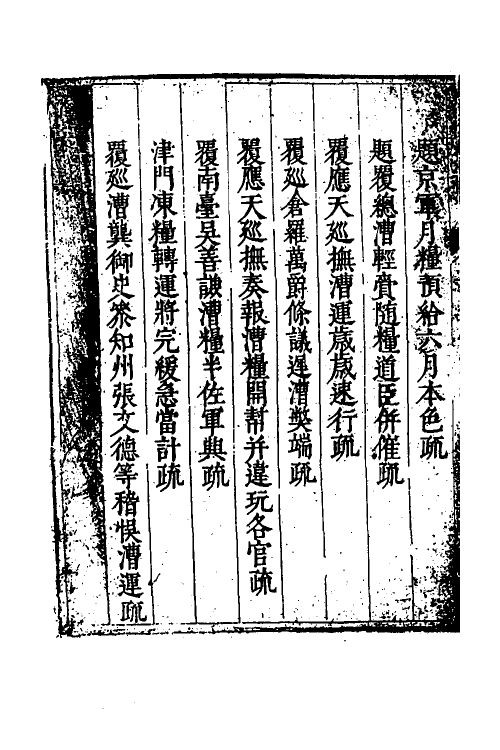 題京軍月糧預給六月本色疏
題覆總漕輕賫隨糧道臣併催疏
覆應天廵撫漕運歲歲速行疏
覆廵倉羅萬爵條議遲漕獘端疏
覆應天廵撫奏報漕糧開幇并違玩各官疏
覆南臺吳善謙漕糧半佐軍興疏
津門凍糧轉運將完緩急當計疏
覆廵漕龔御史叅知州張文德等稽悞漕運疏